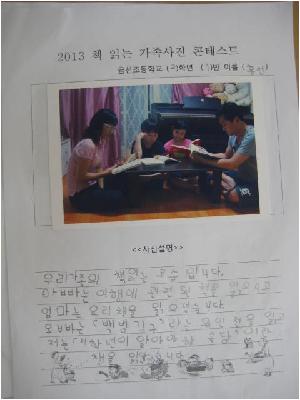 2013 책 읽는 가족사진 콘테스트
초등학교 (2)학년 (1)반 이름 (
<<사진설명>>
우리가족의 책읽는 모습 입니다.
아빠는 여행에 관련 된 책을 읽으시고
엄마는 요리책을 읽으셨습니다.
오빠는 '백범 김구'라는 위인 책을 읽고
저는 '2학년이 알아야 할
책을 읽습니다.